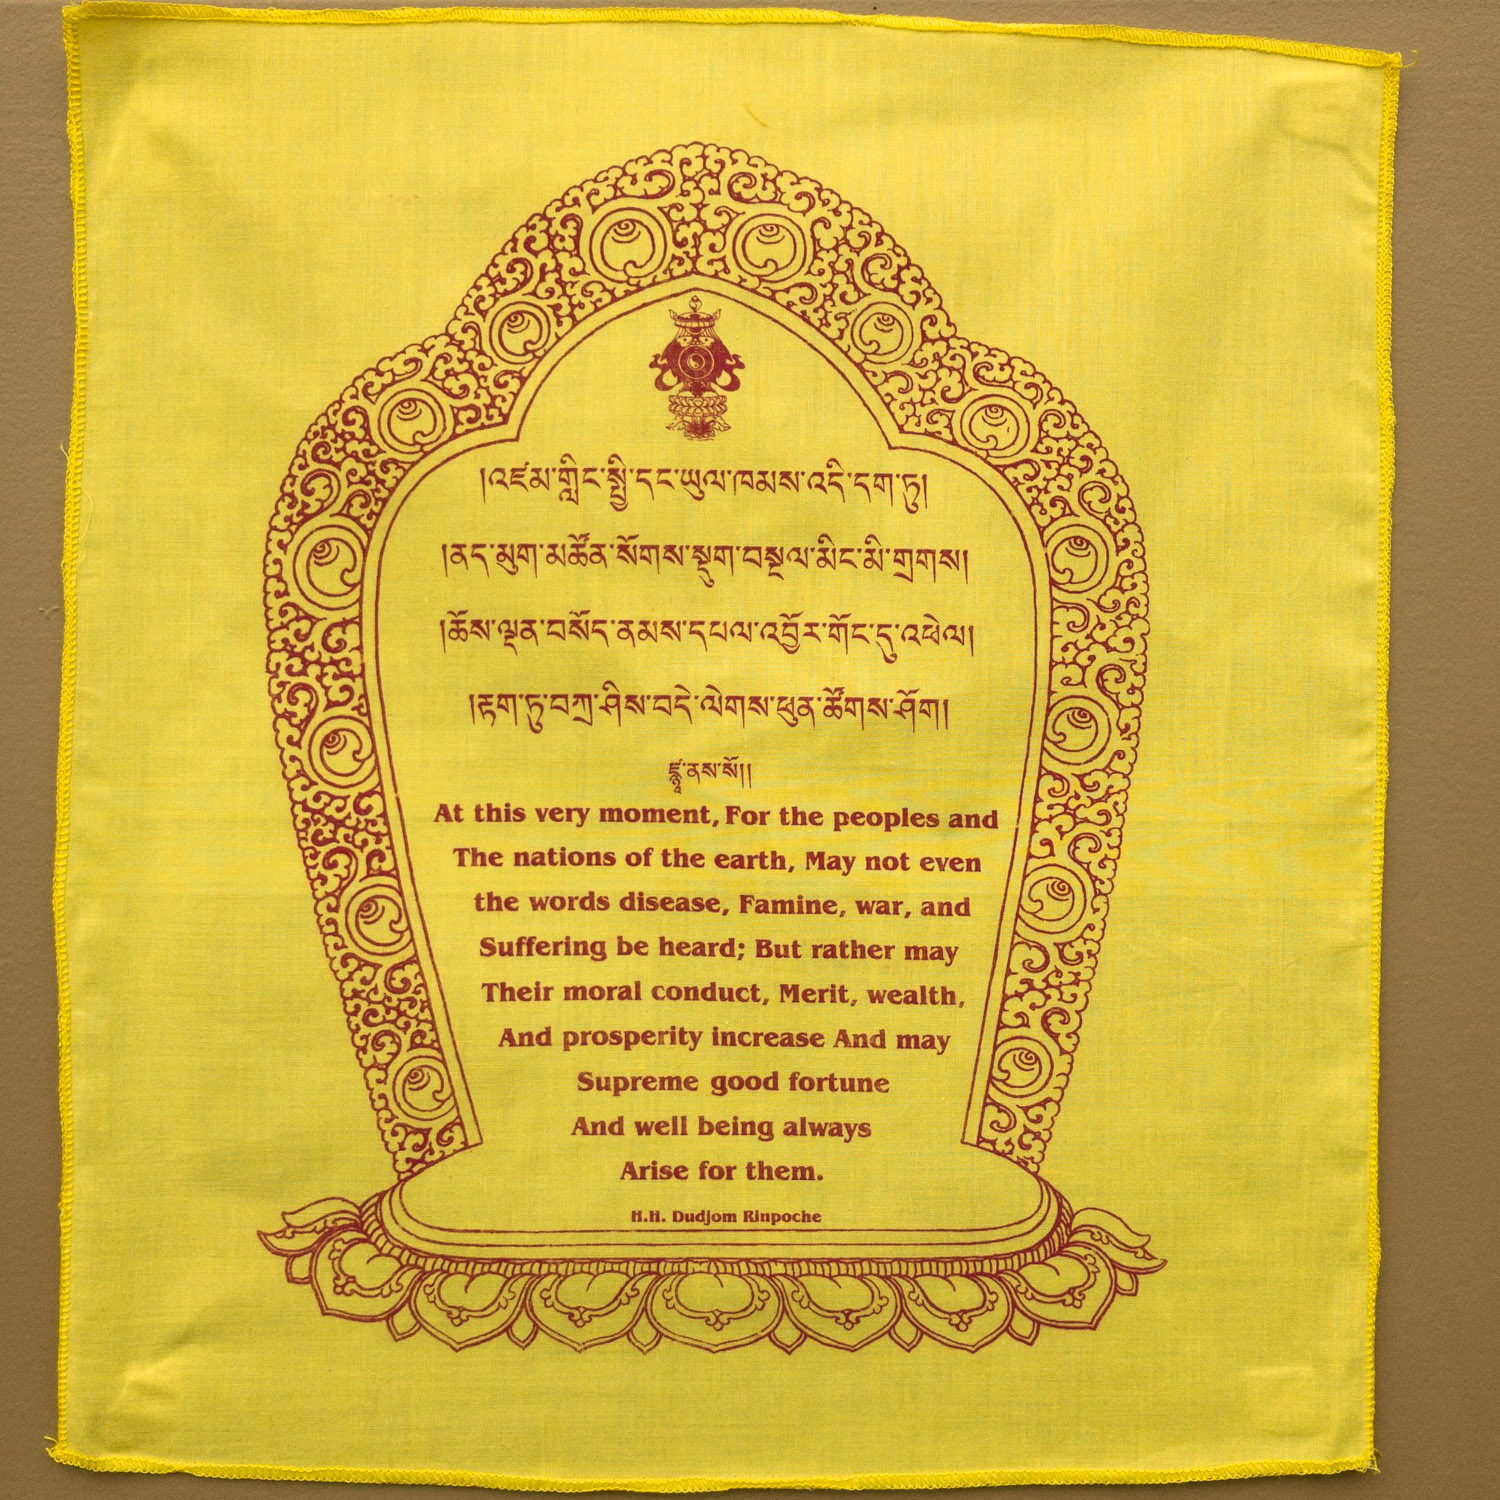 །འཛམ་གླིང་སྤྱི་དང་ཡུལ་ཁམས་འདི་དག་ཏུ།
།ནད་མུག་མཚོན་སོགས་སྡུག་བསྔལ་མིང་མི་གྲགས།
།ཆོས་ལྡན་བསོད་ནམས་དཔལ་འབྱོར་གོང་དུ་འཕེལ།
།རྟག་ཏུ་བཀྲ་ཤིས་བདེ་ལེགས་ཕུན་ཚོགས་ཤོག།
ནས་སོ།།
At this very moment, For the peoples and
The nations of the earth, May not even
the words disease, Famine, war, and
Suffering be heard; But rather may
Their moral conduct, Merit, wealth,
And prosperity increase And may
Supreme good fortune
And well being always
Arise for them.
H.H. Dudjom Rinpoche